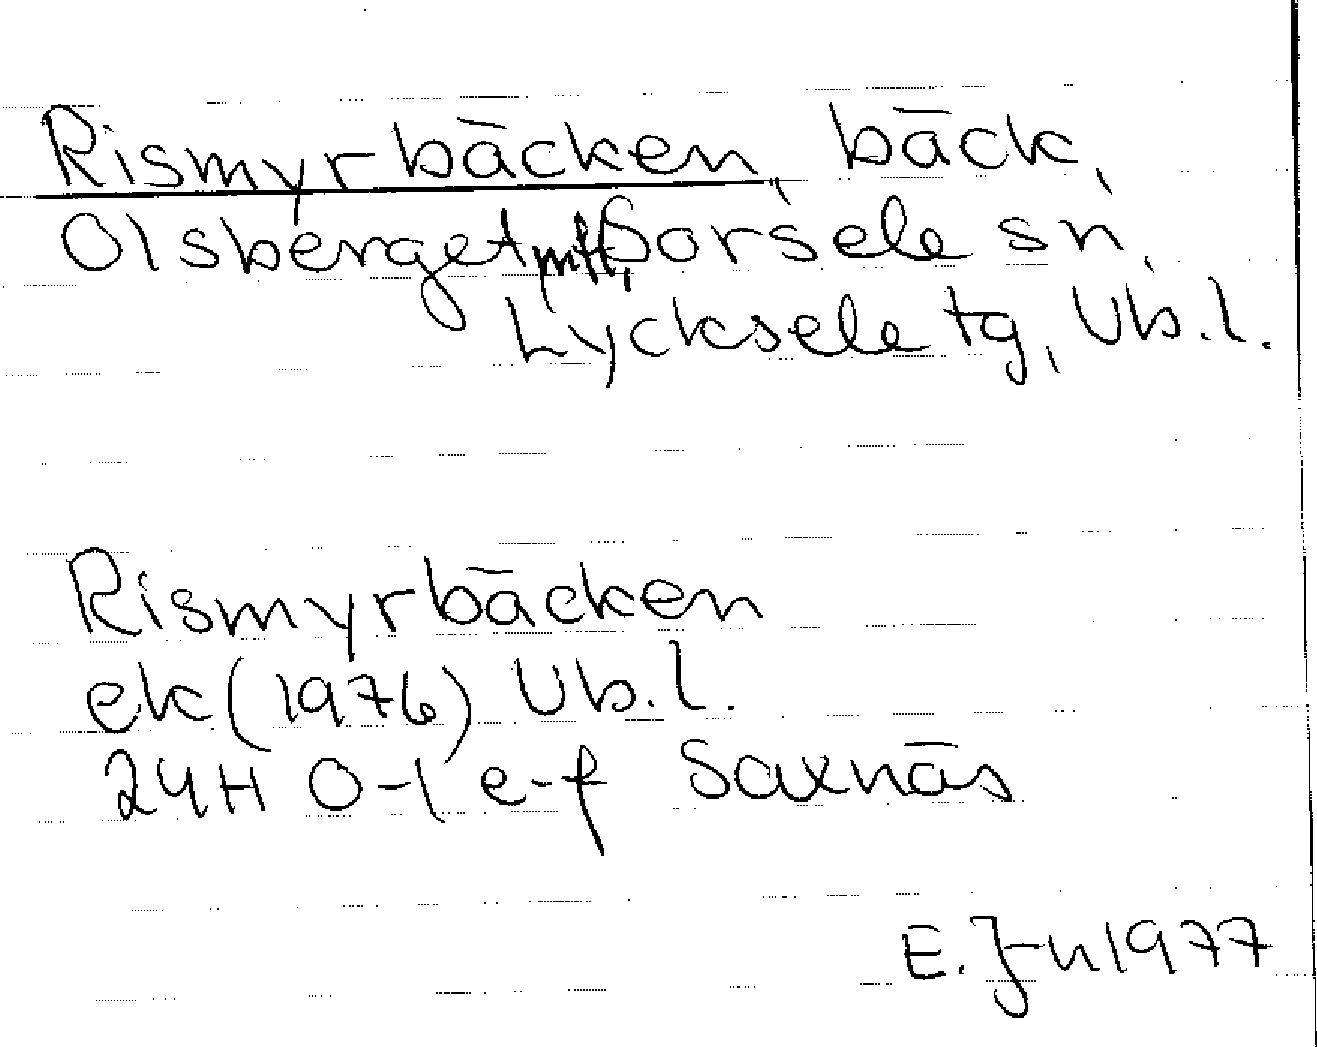 Rismyrbäcken, bäck,
Olsberget mtl, Sorsele sn,
Lycksele tg, Vb.l.
Rismyrbäcken
ek (1976) Vb.l.
24H 0-1 e-f Saxnäs
E. J-n 1977